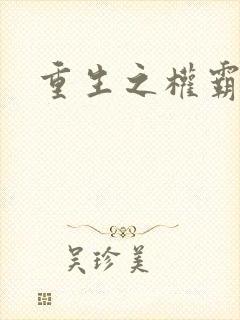 重生之權霸
吴珍美